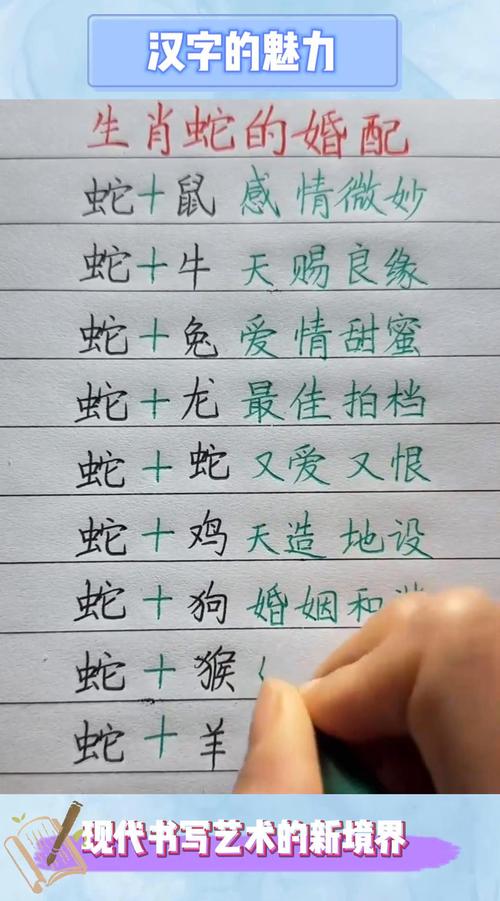 汉字的魅力
生肖蛇的婚配
蛇+鼠 感情微妙
蛇+牛 天赐良缘
蛇+兔 爱情甜蜜
蛇+龙 最佳拍档
蛇+蛇 又爱又恨
蛇+鸡 天造地设
蛇+狗 婚姻和
蛇+猴
蛇+羊
现代书写艺术的新境界